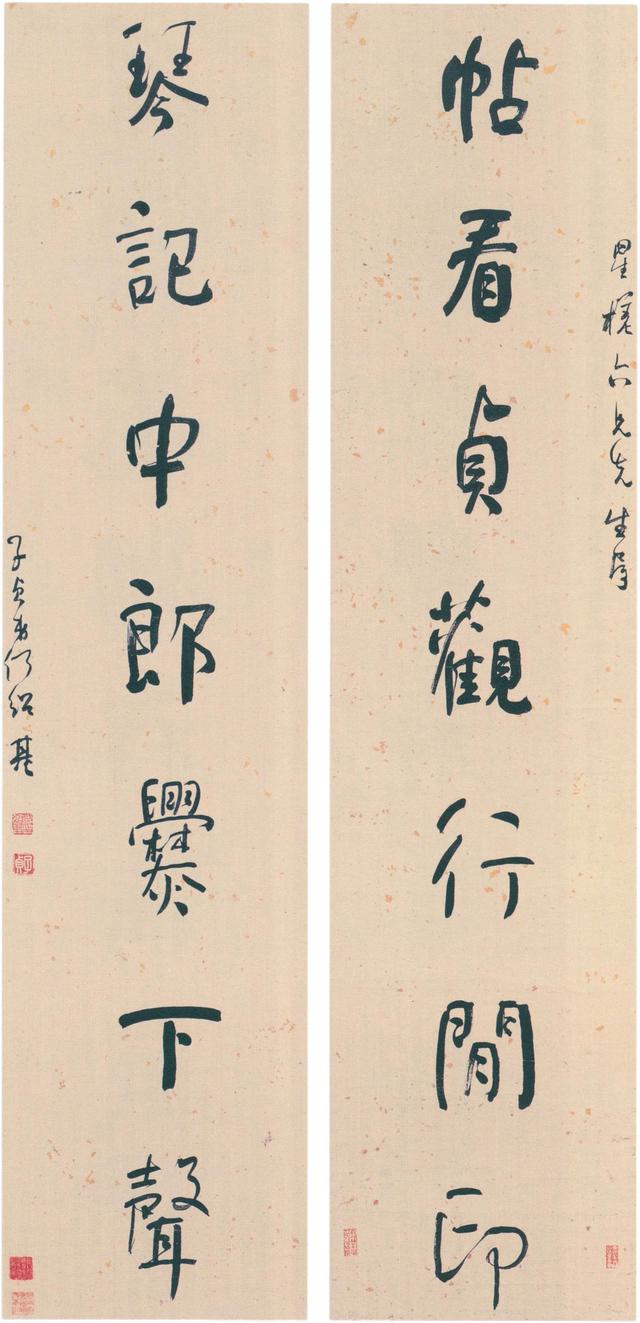 星槎六兄先生屬
帖看貞觀行間印
琴記中郎爨下聲
子貞弟何紹基